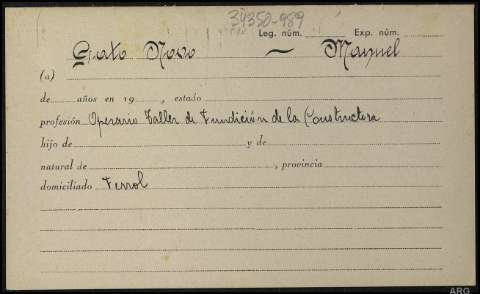 34350-989
Leg. núm. Exp. núm.
Gato Novo — Manuel
(a)
de años en 19 , estado
profesión Operario Taller de Fundición de la Constructora
hijo de y de
natural de , provincia
domiciliado Ferrol
ARG